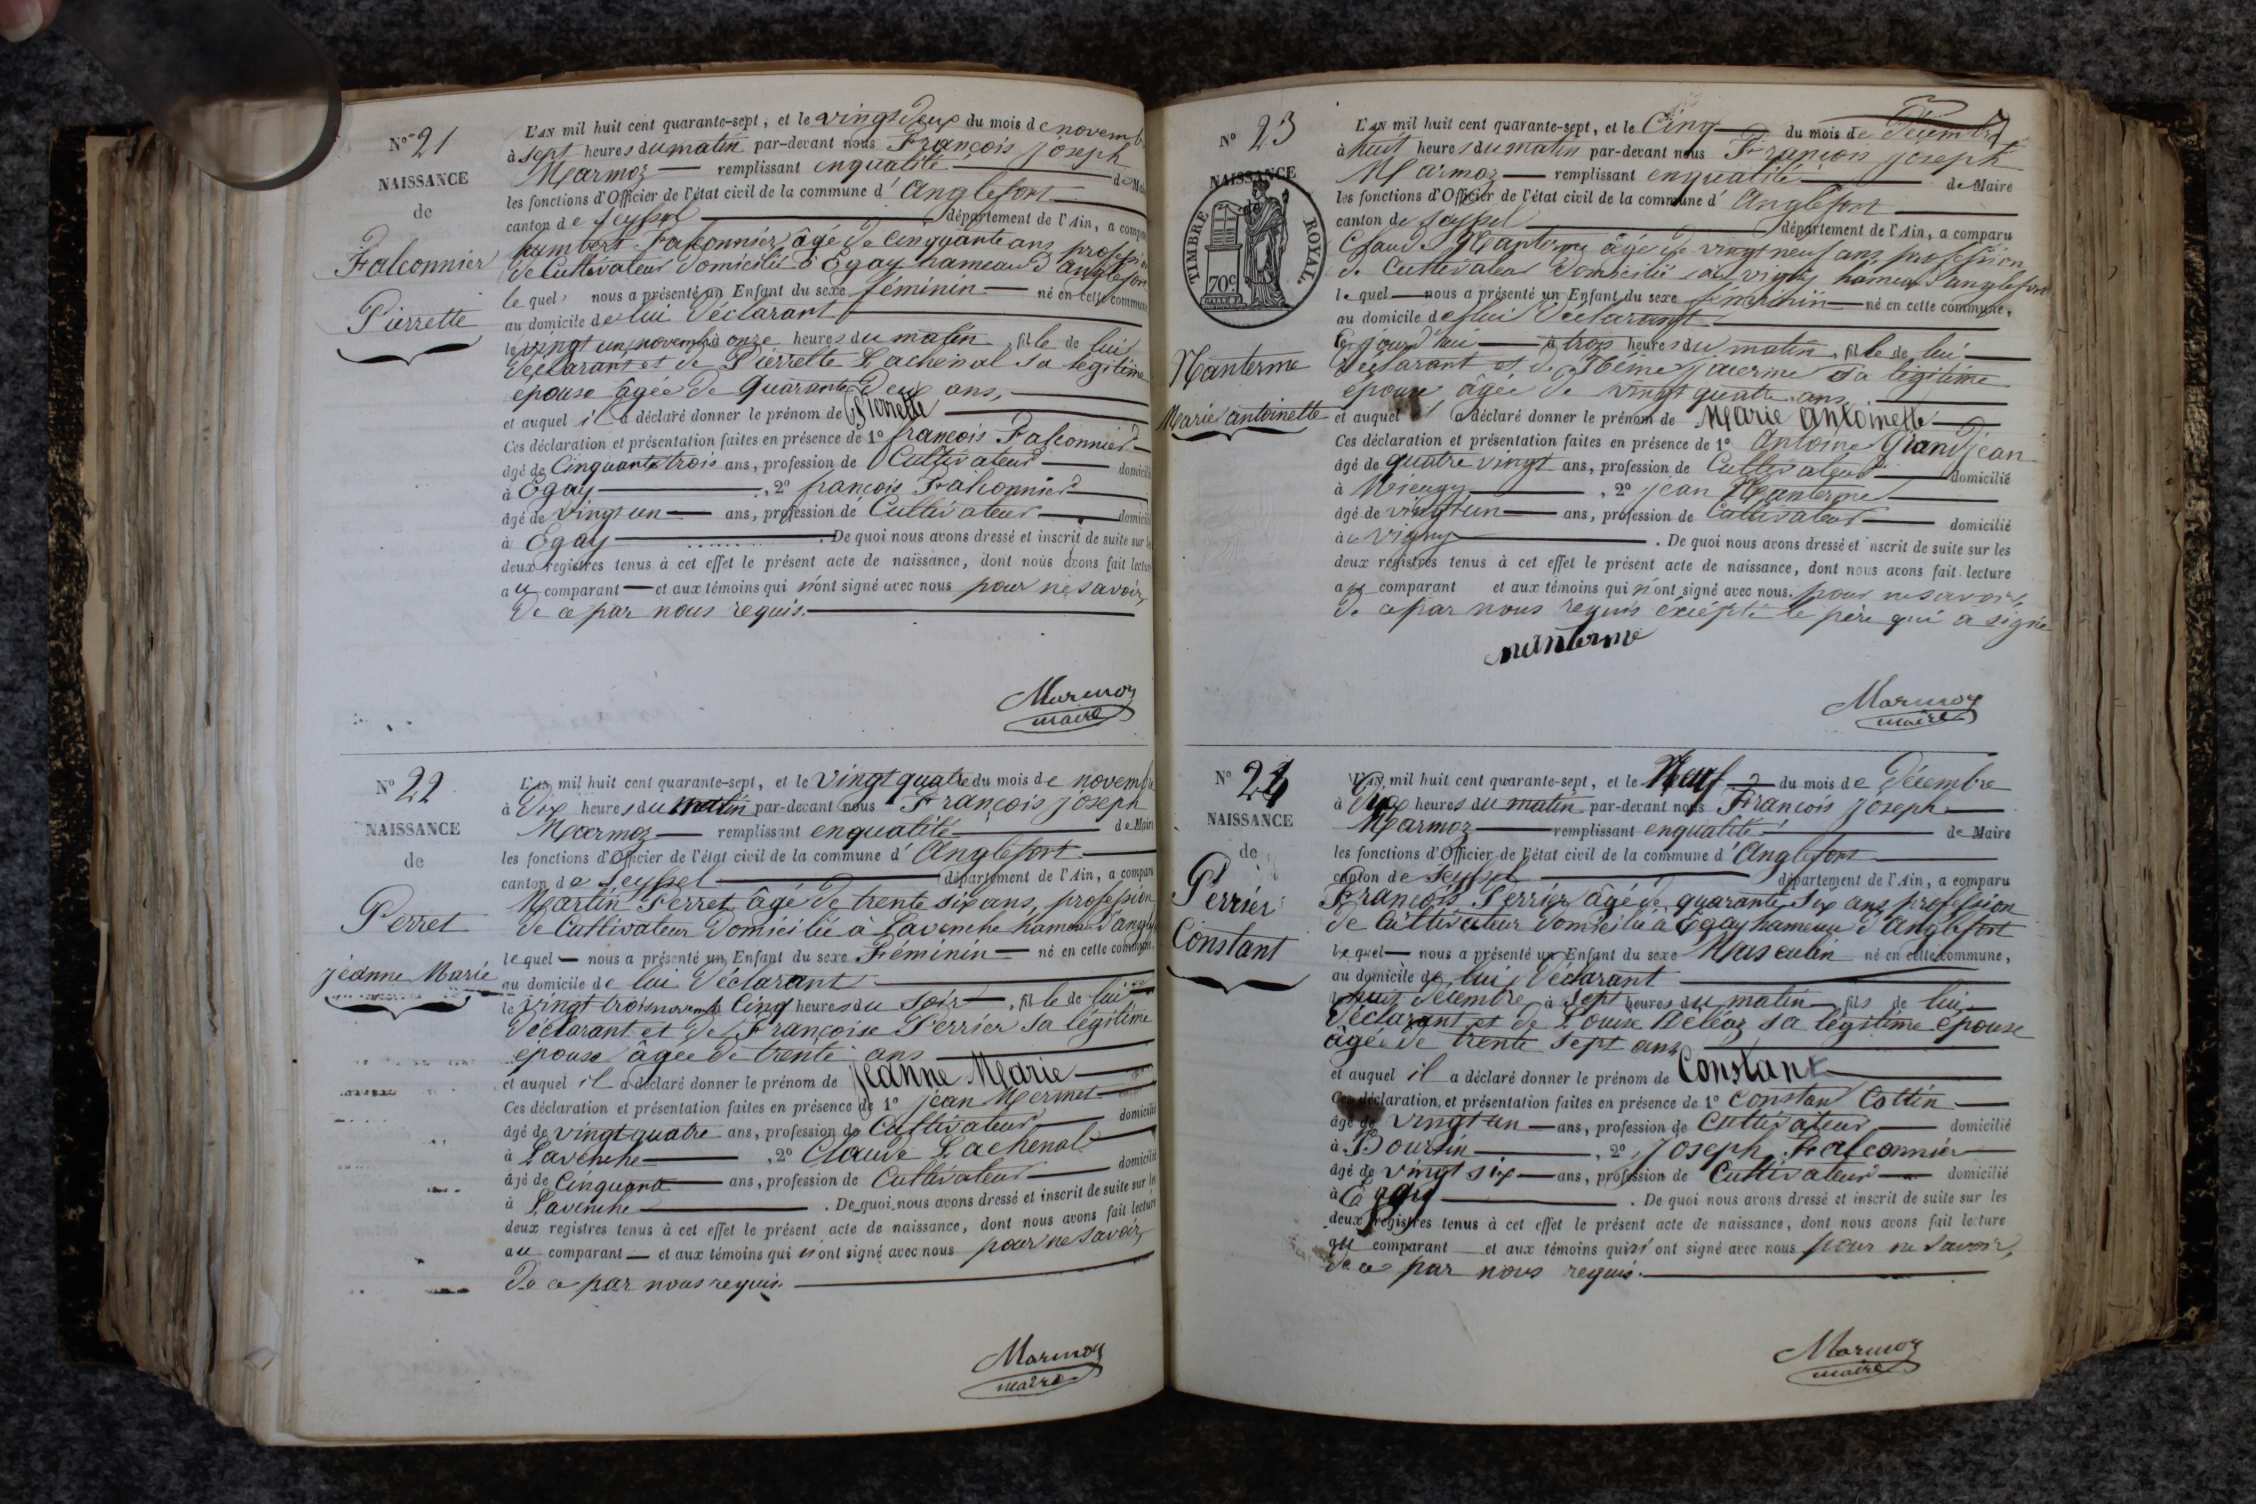 N° 21
NAISSANCE
de
Falconnier
Pierrette
L'AN mil huit cent quarante-sept, et le vingt deux du mois de novemb
à sept heures du matin par-devant nous François joseph
Marmoz remplissant enqualité de Mai
les fonctions d'Officier de l'état civil de la commune d'Anglefort
canton de Seyssel département de l'Ain, a compa
humbert Falconnier, âgé de Cinquante ans, profession
de Cultivateur domicilié à Egay hameau d'anglefort
lequel nous a présenté un Enfant du sexe féminin né en cette commune
au domicile de lui déclarant
le vingt un novembre à onze heures du matin, fille de lui
déclarant et de Pierrette Lachenal sa légitime
épouse âgée de quarante deux ans,
et auquel il a déclaré donner le prénom de Pierrette
Ces déclaration et présentation faites en présence de 1° françois Falconnier
âgé de Cinquante trois ans, profession de Cultivateur domicilié
à Egay, 2° françois Falconnier
âgé de vingt un ans, profession de Cultivateur domicilié
à Egay . De quoi nous avons dressé et inscrit de suite sur les
deux registres tenus à cet effet le présent acte de naissance, dont nous avons fait lecture
au comparant et aux témoins qui n'ont signé avec nous pour ne savoir,
de ce par nous requis.
Marmoz
maire
N° 22
NAISSANCE
de
Perret
jeanne Marie
L'AN mil huit cent quarante-sept, et le vingt quatre du mois de novembre
à Dix heures du matin par-devant nous François joseph
Marmoz remplissant enqualité de Maire
les fonctions d'Officier de l'état civil de la commune d'Anglefort
canton de Seyssel département de l'Ain, a comparu
Martin Perret âgé de trente six ans, profession
de Cultivateur domicilié à Lavenche hameau d'anglef
lequel nous a présenté un Enfant du sexe Féminin né en cette commune
au domicile de lui déclarant
le vingt trois novembre Cinq heures du soir, fille de lui
déclarant et de Françoise Perrier sa légitime
épouse âgée de trente ans
et auquel il a déclaré donner le prénom de jeanne Marie
Ces déclaration et présentation faites en présence de 1° jean Mermet
âgé de vingt quatre ans, profession de Cultivateur domicilié
à Lavenche, 2° Claude Lachenal
âgé de Cinquante ans, profession de Cultivateur domicilié
à Lavenche . De quoi nous avons dressé et inscrit de suite sur les
deux registres tenus à cet effet le présent acte de naissance, dont nous avons fait lecture
au comparant et aux témoins qui n'ont signé avec nous pour ne savoir,
de ce par nous requis.
Marmoz
maire
N° 23
NAISSANCE
TIMBRE ROYAL.
70c
Nanterme
Marie antoinette
L'AN mil huit cent quarante-sept, et le Cinq du mois de Décembre
à huit heures du matin par-devant nous François joseph
Marmoz remplissant enqualité de Maire
les fonctions d'Officier de l'état civil de la commune d'Anglefort
canton de Seyssel département de l'Ain, a comparu
Claude Nanterme âgé de vingt neuf ans, profession
de Cultivateur domicilié à hameau d'anglefort
lequel nous a présenté un Enfant du sexe féminin né en cette commune,
au domicile de lui déclarant
Ce jourd'hui à trois heures du matin, fille de lui
déclarant et de sa légitime
épouse âgée de vingt quatre ans
et auquel il a déclaré donner le prénom de Marie Antoinette
Ces déclaration et présentation faites en présence de 1° Antoine Grandjean
âgé de quatre vingt ans, profession de Cultivateur domicilié
à, 2° jean Nanterme
âgé de vingt un ans, profession de Cultivateur domicilié
à . De quoi nous avons dressé et inscrit de suite sur les
deux registres tenus à cet effet le présent acte de naissance, dont nous avons fait lecture
au comparant et aux témoins qui n'ont signé avec nous pour ne savoir,
de ce par nous requis excepté le père qui a signé
nanterme
Marmoz
maire
N° 24
NAISSANCE
de
Perrier
Constant
L'AN mil huit cent quarante-sept, et le Neuf du mois de Décembre
à Dix heures du matin par-devant nous François joseph
Marmoz remplissant enqualité de Maire
les fonctions d'Officier de l'état civil de la commune d'Anglefort
canton de Seyssel département de l'Ain, a comparu
François Perrier âgé de quarante six ans, profession
de Cultivateur domicilié à Egay hameau d'Anglefort
lequel nous a présenté un Enfant du sexe Masculin né en cette commune,
au domicile de lui déclarant
le huit Décembre à sept heures du matin, fils de lui
déclarant et de Louise sa légitime épouse
âgée de trente sept ans
et auquel il a déclaré donner le prénom de Constant
Ces déclaration et présentation faites en présence de 1° Constan Cottin
âgé de vingt un ans, profession de Cultivateur domicilié
à Boursin, 2° Joseph Falconnier
âgé de vingt six ans, profession de Cultivateur domicilié
à Egay . De quoi nous avons dressé et inscrit de suite sur les
deux registres tenus à cet effet le présent acte de naissance, dont nous avons fait lecture
au comparant et aux témoins qui n'ont signé avec nous pour ne savoir,
de ce par nous requis.
Marmoz
maire